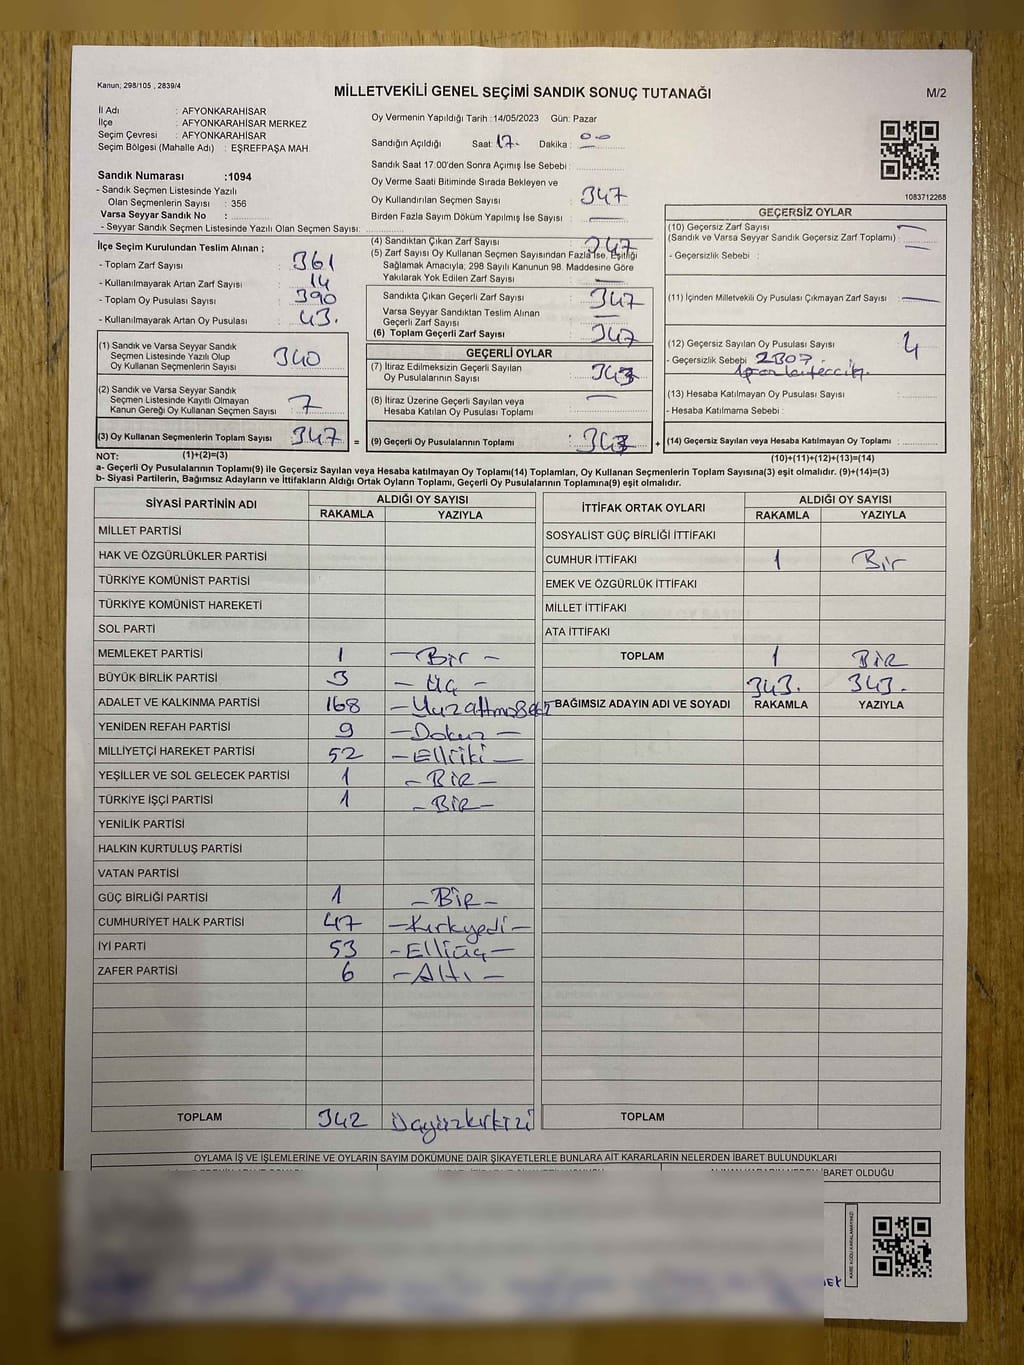 Kanun; 298/105 , 2839/4
MİLLETVEKİLİ GENEL SEÇİMİ SANDIK SONUÇ TUTANAĞI
M/2
İl Adı : AFYONKARAHİSAR
İlçe : AFYONKARAHİSAR MERKEZ
Seçim Çevresi : AFYONKARAHİSAR
Seçim Bölgesi (Mahalle Adı) : EŞREFPAŞA MAH.
Sandık Numarası :1094
- Sandık Seçmen Listesinde Yazılı
Olan Seçmenlerin Sayısı : 356
Varsa Seyyar Sandık No :
- Seyyar Sandık Seçmen Listesinde Yazılı Olan Seçmen Sayısı:
Oy Vermenin Yapıldığı Tarih :14/05/2023 Gün: Pazar
Sandığın Açıldığı Saat: 17 Dakika : 00
Sandık Saat 17.00'den Sonra Açımış İse Sebebi :
Oy Verme Saati Bitiminde Sırada Bekleyen ve
Oy Kullandırılan Seçmen Sayısı : 347
Birden Fazla Sayım Döküm Yapılmış İse Sayısı : —
1083712268
İlçe Seçim Kurulundan Teslim Alınan ;
- Toplam Zarf Sayısı : 361
- Kullanılmayarak Artan Zarf Sayısı : 14
- Toplam Oy Pusulası Sayısı : 390
- Kullanılmayarak Artan Oy Pusulası : 43.
(1) Sandık ve Varsa Seyyar Sandık
Seçmen Listesinde Yazılı Olup
Oy Kullanan Seçmenlerin Sayısı : 340
(2) Sandık ve Varsa Seyyar Sandık
Seçmen Listesinde Kayıtlı Olmayan
Kanun Gereği Oy Kullanan Seçmen Sayısı : 7
(3) Oy Kullanan Seçmenlerin Toplam Sayısı : 347 =
(4) Sandıktan Çıkan Zarf Sayısı : 347
(5) Zarf Sayısı Oy Kullanan Seçmen Sayısından Fazla İse, Eşitliği
Sağlamak Amacıyla, 298 Sayılı Kanunun 98. Maddesine Göre
Yakılarak Yok Edilen Zarf Sayısı : —
Sandıkta Çıkan Geçerli Zarf Sayısı : 347
Varsa Seyyar Sandıktan Teslim Alınan
Geçerli Zarf Sayısı : —
(6) Toplam Geçerli Zarf Sayısı : 347
GEÇERLİ OYLAR
(7) İtiraz Edilmeksizin Geçerli Sayılan
Oy Pusulalarının Sayısı : 343
(8) İtiraz Üzerine Geçerli Sayılan veya
Hesaba Katılan Oy Pusulası Toplamı : —
(9) Geçerli Oy Pusulalarının Toplamı : 343 +
GEÇERSİZ OYLAR
(10) Geçersiz Zarf Sayısı : —
(Sandık ve Varsa Seyyar Sandık Geçersiz Zarf Toplamı) : —
- Geçersizlik Sebebi :
(11) İçinden Milletvekili Oy Pusulası Çıkmayan Zarf Sayısı : —
(12) Geçersiz Sayılan Oy Pusulası Sayısı : 4
- Geçersizlik Sebebi :
(13) Hesaba Katılmayan Oy Pusulası Sayısı :
- Hesaba Katılmama Sebebi :
(14) Geçersiz Sayılan veya Hesaba Katılmayan Oy Toplamı :
NOT: (1)+(2)=(3)
(10)+(11)+(12)+(13)=(14)
a- Geçerli Oy Pusulalarının Toplamı(9) ile Geçersiz Sayılan veya Hesaba katılmayan Oy Toplamı(14) Toplamları, Oy Kullanan Seçmenlerin Toplam Sayısına(3) eşit olmalıdır. (9)+(14)=(3)
b- Siyasi Partilerin, Bağımsız Adayların ve İttifakların Aldığı Ortak Oyların Toplamı, Geçerli Oy Pusulalarının Toplamına(9) eşit olmalıdır.
SİYASİ PARTİNİN ADI ALDIĞI OY SAYISI
RAKAMLA YAZIYLA
MİLLET PARTİSİ
HAK VE ÖZGÜRLÜKLER PARTİSİ
TÜRKİYE KOMÜNİST PARTİSİ
TÜRKİYE KOMÜNİST HAREKETİ
SOL PARTİ
MEMLEKET PARTİSİ 1 — Bir —
BÜYÜK BİRLİK PARTİSİ 3 — Üç —
ADALET VE KALKINMA PARTİSİ 168 — Yüzaltmışsekiz
YENİDEN REFAH PARTİSİ 9 — Dokuz —
MİLLİYETÇİ HAREKET PARTİSİ 52 — Elliiki —
YEŞİLLER VE SOL GELECEK PARTİSİ 1 — BİR —
TÜRKİYE İŞÇİ PARTİSİ 1 — BİR —
YENİLİK PARTİSİ
HALKIN KURTULUŞ PARTİSİ
VATAN PARTİSİ
GÜÇ BİRLİĞİ PARTİSİ 1 — BİR —
CUMHURİYET HALK PARTİSİ 47 — Kırkyedi —
İYİ PARTİ 53 — Elliüç —
ZAFER PARTİSİ 6 — Altı —
TOPLAM 342 Üçyüzkırkizi
İTTİFAK ORTAK OYLARI ALDIĞI OY SAYISI
RAKAMLA YAZIYLA
SOSYALİST GÜÇ BİRLİĞİ İTTİFAKI
CUMHUR İTTİFAKI 1 Bir
EMEK VE ÖZGÜRLÜK İTTİFAKI
MİLLET İTTİFAKI
ATA İTTİFAKI
TOPLAM 1 BİR
343. 343.
BAĞIMSIZ ADAYIN ADI VE SOYADI RAKAMLA YAZIYLA
TOPLAM
OYLAMA İŞ VE İŞLEMLERİNE VE OYLARIN SAYIM DÖKÜMÜNE DAİR ŞİKAYETLERLE BUNLARA AİT KARARLARIN NELERDEN İBARET BULUNDUKLARI
İBARET OLDUĞU
KARE KODU KARALAMAYINIZ!